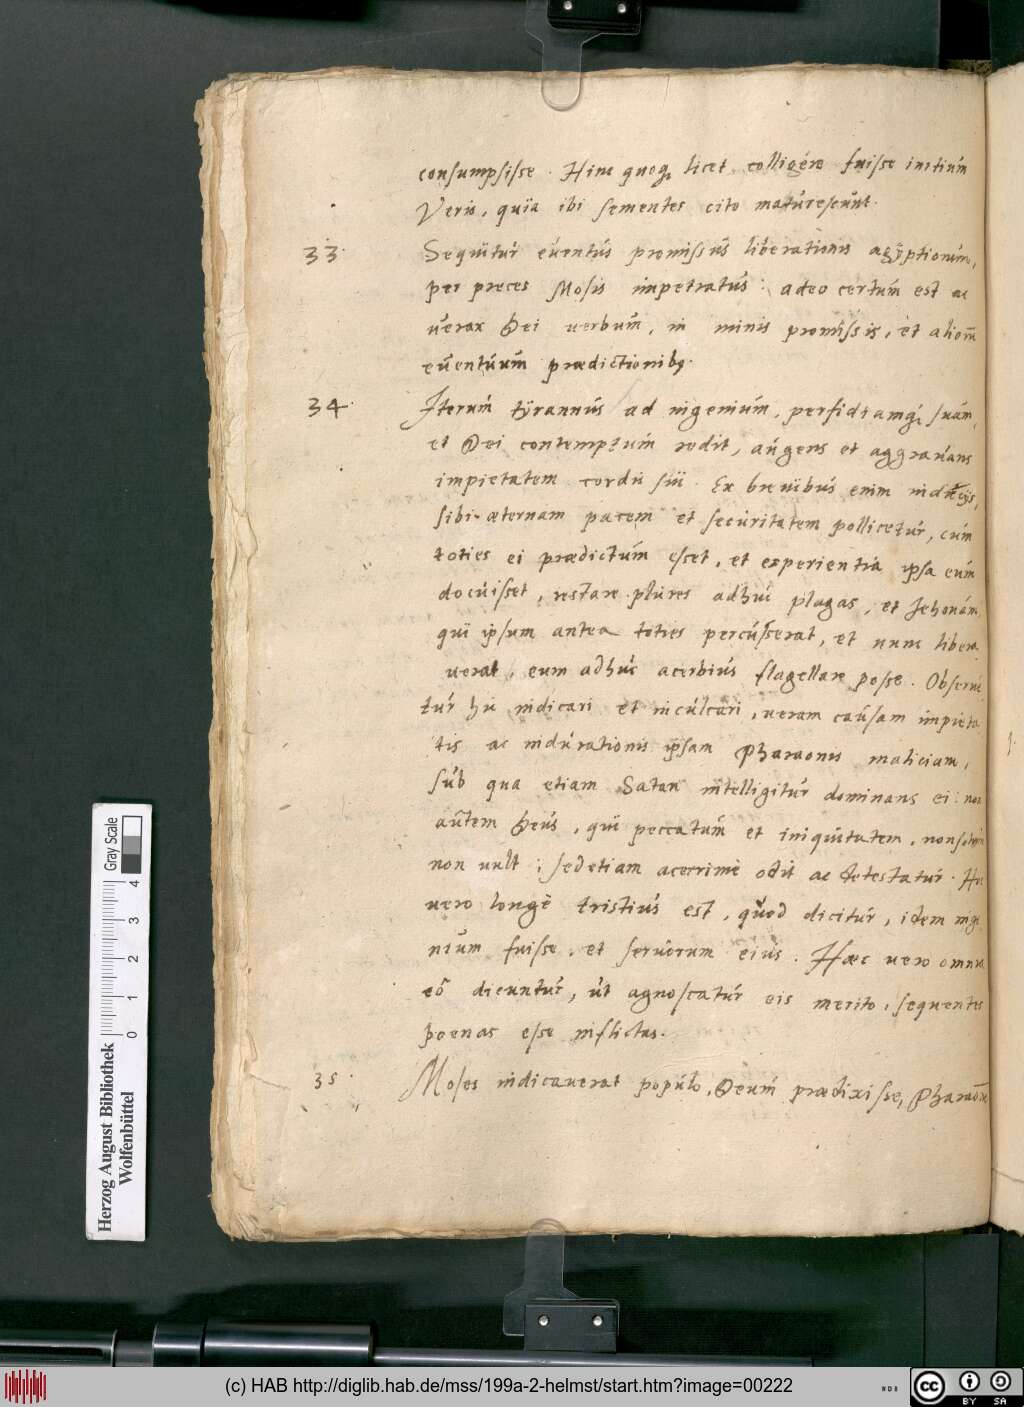 consumpsisse. Hinc quoq; licet colligere fuisse initium
Veris, quia ibi sementes cito maturescunt.
33. Sequitur eventus promissus liberationis aegyptiorum,
per preces Mosis impetratus: adeo certum est ac
verax Dei verbum, in minis promissis, et aliorū
eventuum praedictionibꝫ.
34. Iterum tyrannus ad ingenium, perfidiamq; suam,
et Dei contemptum redit, augens et aggravans
impietatem cordis sui. Ex brevibus enim inducijs,
sibi aeternam pacem et securitatem pollicetur, cum
toties ei praedictum esset, et experientia ipsa eum
docuisset, restare plures adhuc plagas, et Jehovam,
qui ipsum antea toties percusserat, et nunc libera
verat, eum adhuc acerbius flagellare posse. Observe
tur hic indicari et inculcari, veram causam impieta
tis ac indurationis ipsam Pharaonis maliciam,
sub qua etiam Satan intelligitur dominans ei: non
autem Deus, qui peccatum et iniquitatem, non
non vult, sed etiam acerrime odit ac detestatur. Hoc
vero longe tristius est, quod dicitur, idem inge
nium fuisse, et servorum eius. Haec vero omnia
eō dicuntur, ut agnoscatur eis merito, sequentes
poenas esse inflictas.
35. Moses indicaverat populo, Deum praedixisse, Pharaonē
Gray Scale
0 1 2 3 4
Herzog August Bibliothek
Wolfenbüttel
(c) HAB http://diglib.hab.de/mss/199a-2-helmst/start.htm?image=00222
cc BY SA